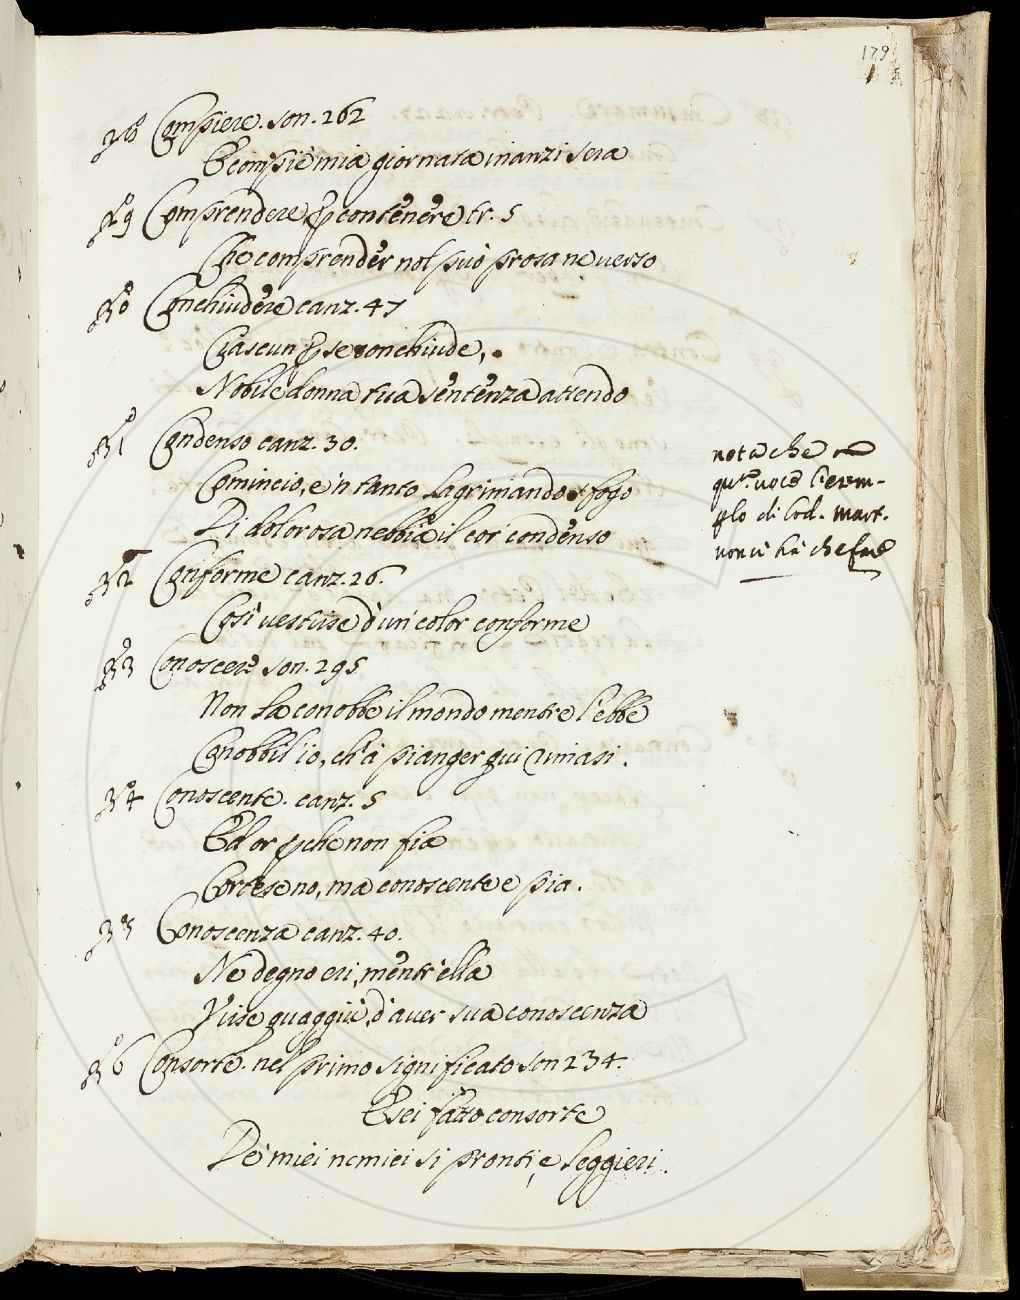 179
28 Compiere. son. 262
E compiè mia giornata inanzi sera
29 Comprendere p contenere tr. 5
Che comprender nol può prosa ne verso
30 Conchiudere canz. 47
Ciascun p se conchiude,
Nobile donna tua sentenza attendo
31 Condenso canz. 30.
Comincio, e'n tanto lagrimando sfogo
Di dolorosa nebbia il cor condenso
nota che
qu.ª voce l'exem-
plo di Lod. Mart.
non ci hà che fare
32 Conforme canz. 26.
Così vestisse d'un color conforme
33 Conoscere son. 295
Non la conobbe il mondo mentre l'ebbe
Conobbil'io, ch'à pianger qui rimasi.
34 Conoscente. canz. 5
Et or p che non fia
Cortese no, ma conoscente e pia.
35 Conoscenza canz. 40.
Ne degno eri, mentr'ella
Visse quaggiù, d'aver sua conoscenza
36 Consorte. nel primo significato son 234.
E sei fatto consorte
De' miei nemici si pronti, e leggieri.